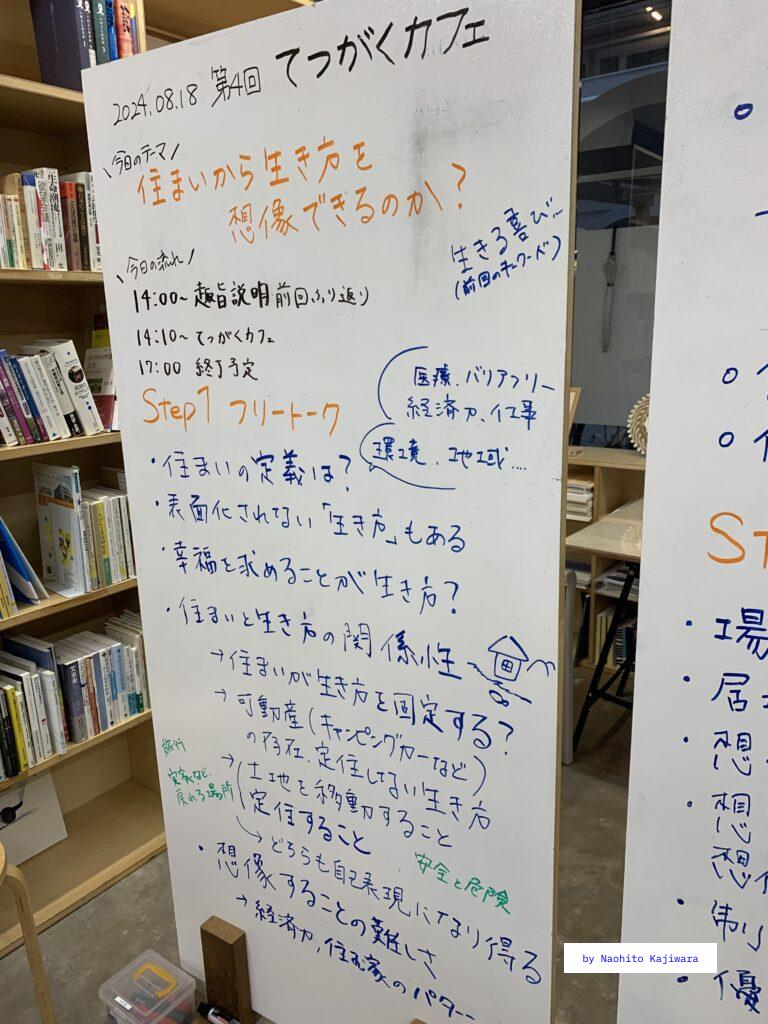 2024.08.18 第4回 てつがくカフェ
\今日のテーマ/
住まいから生き方を
想像できるのか?
生きる喜び…
(前回のキーワード)
\今日の流れ/
14:00~ 趣旨説明 前回ふり返り
14:10~ てつがくカフェ
17:00 終了予定
Step1 フリートーク
医療、バリアフリー
経済力、仕事
環境、地域....
・住まいの定義は?
・表面化されない「生き方」もある
・幸福を求めることが生き方?
・住まいと生き方の関係性
→住まいが生き方を固定する?
→可動産(キャンピングカーなど)
の存在、定住しない生き方
旅行
実家など、
戻れる場所
→土地を移動すること
定住すること
→どちらも自己表現になり得る
安全と危険
・想像することの難しさ
→経済力、住む家のパター
St
・場
・居
・想
・想
想
・制
・優
by Naohito Kajiwara